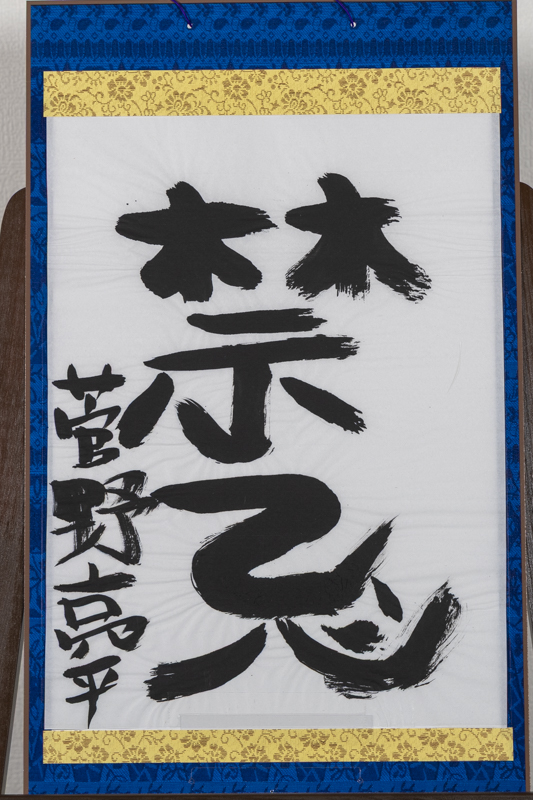 禁忌
菅野亮平